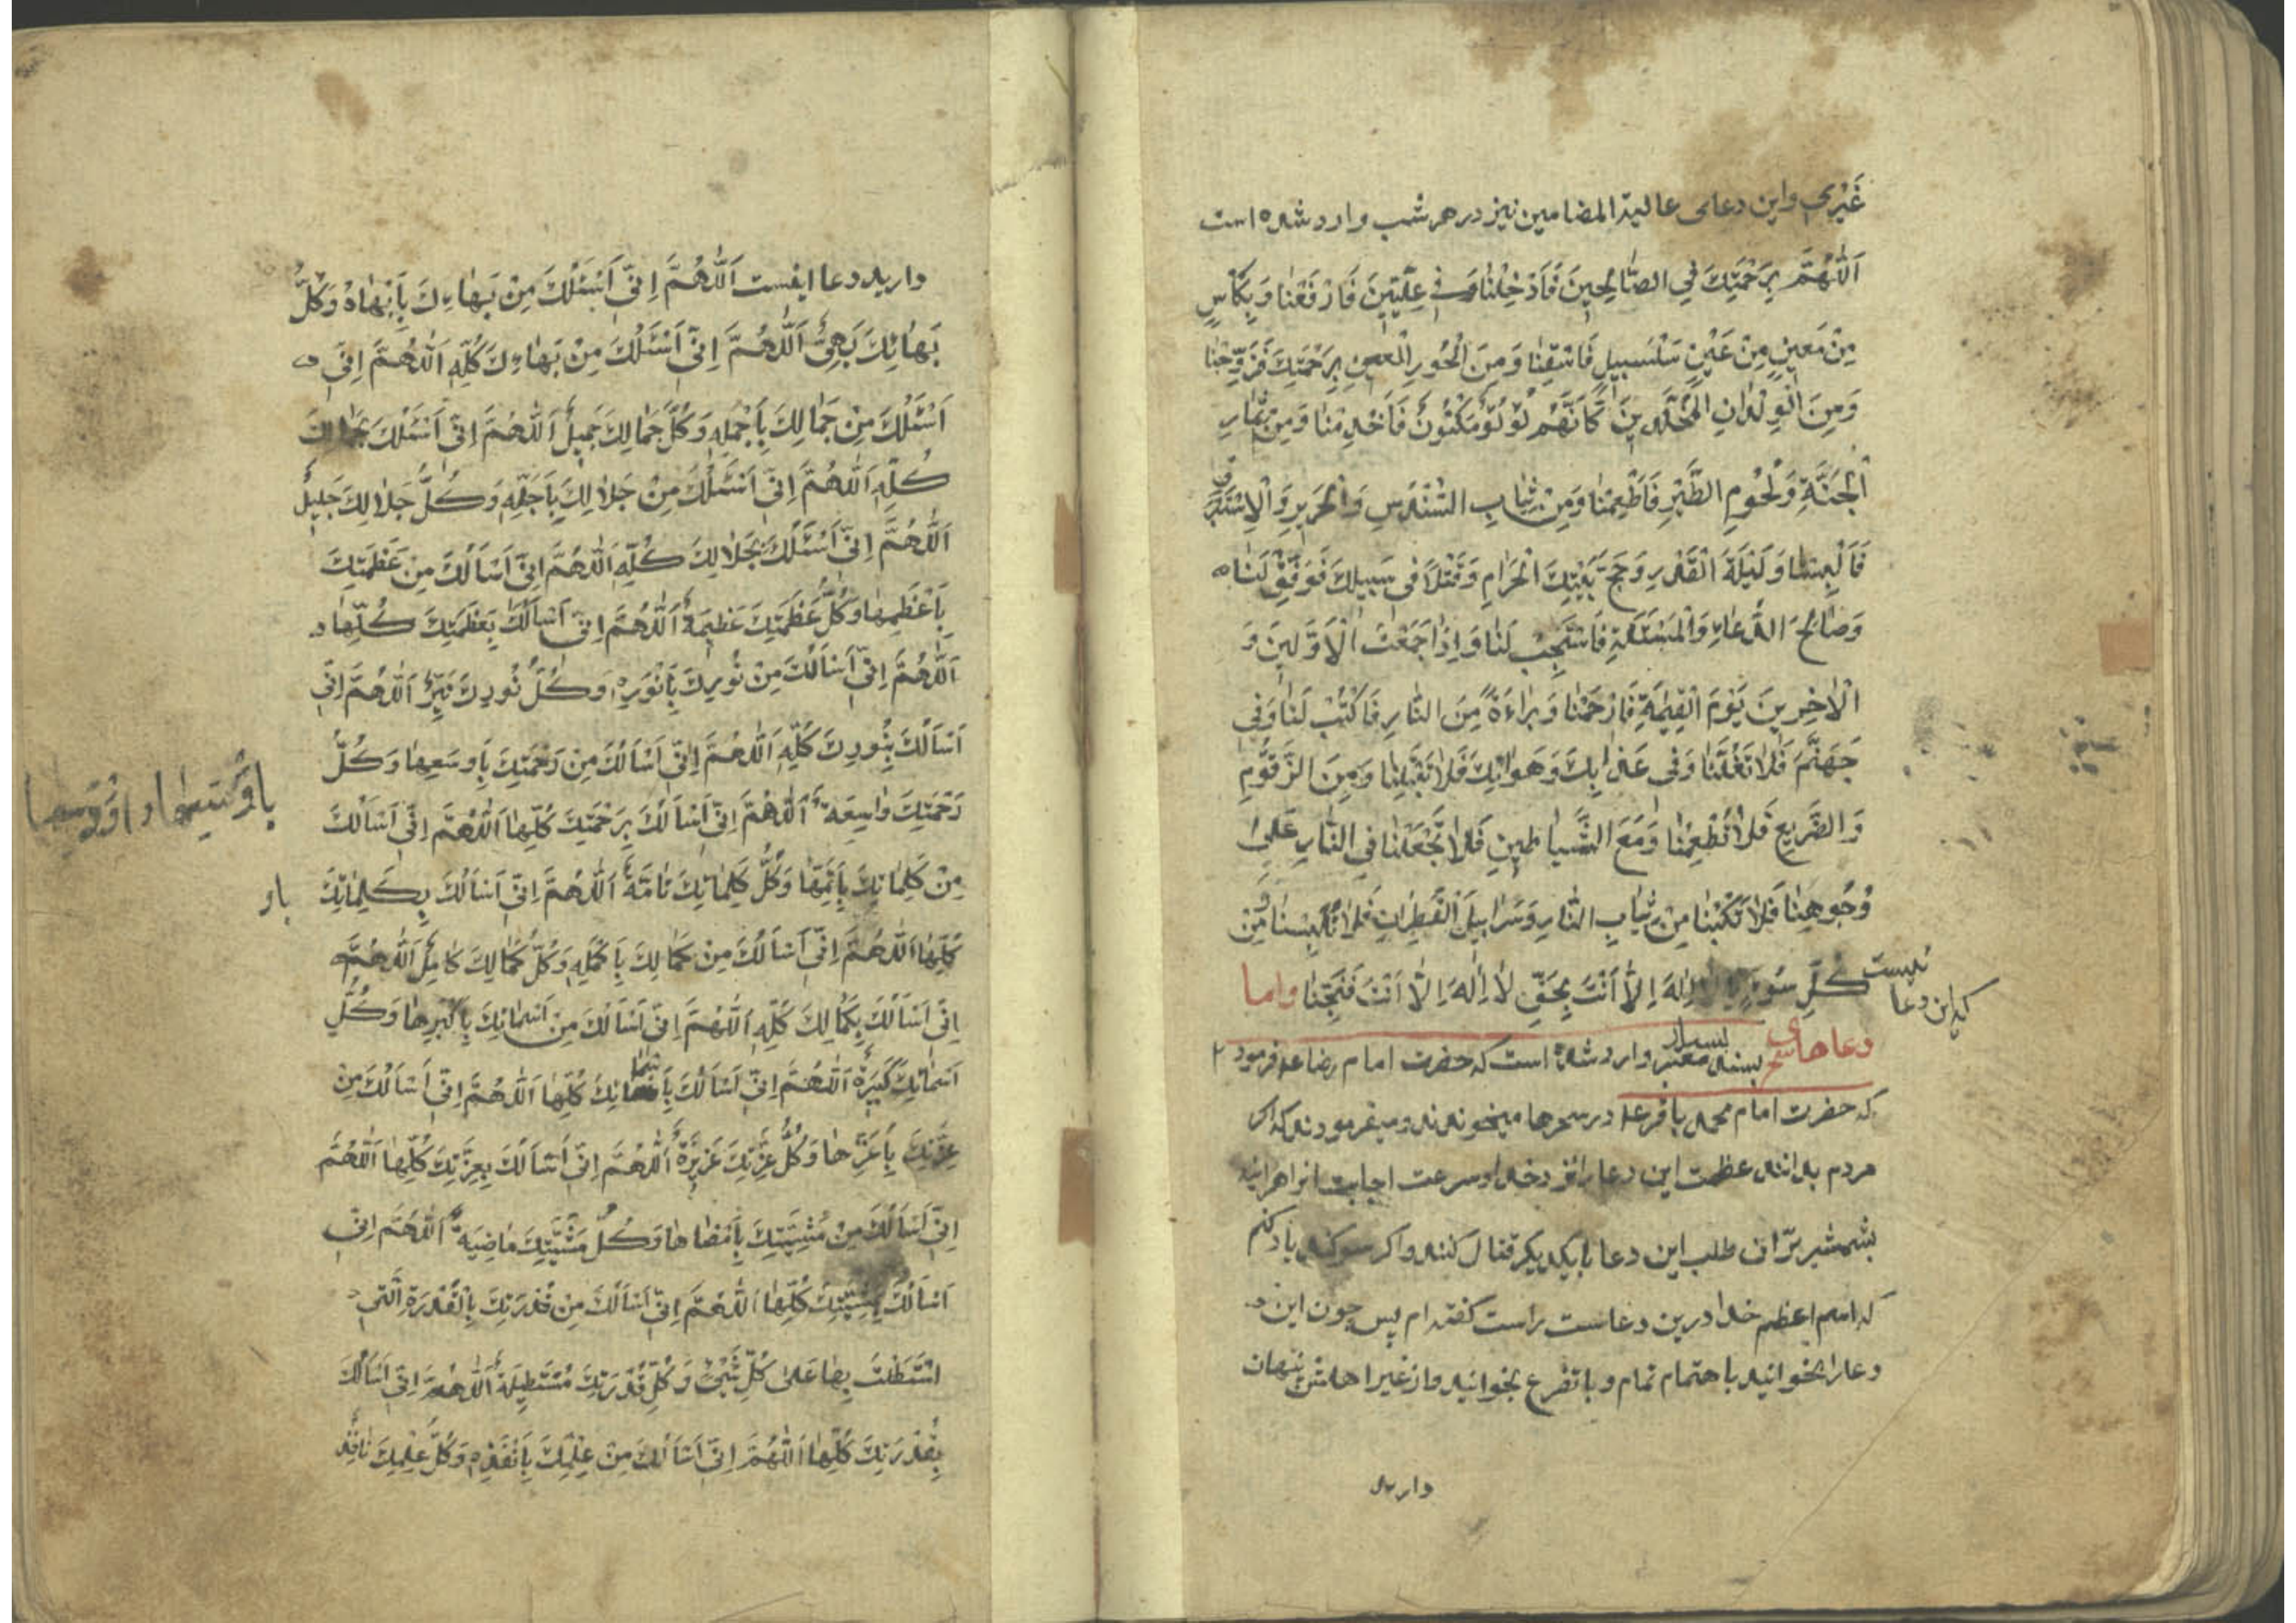 غَيْرِي واین دعای عالیة المضامین نیز در هر شب وارد شده است
اَللّٰهُمَّ بِرَحْمَتِكَ فِي الصّٰالِحِينَ فَاَدْخِلْنٰا وَ فِي عِلِّيِّينَ فَارْفَعْنٰا وَ بِكَأْسٍ
مِنْ مَعِينٍ مِنْ عَيْنٍ سَلْسَبِيلٍ فَاسْقِنٰا وَ مِنَ الْحُورِ الْعِينِ بِرَحْمَتِكَ فَزَوِّجْنٰا
وَ مِنَ الْوِلْدٰانِ الْمُخَلَّدِينَ كَاَنَّهُمْ لُؤْلُؤٌ مَكْنُونٌ فَاَخْدِمْنٰا وَ مِنْ ثِمٰارِ
الْجَنَّةِ وَ لُحُومِ الطَّيْرِ فَاَطْعِمْنٰا وَ مِنْ ثِيٰابِ السُّنْدُسِ وَ الْحَرِيرِ وَ الْاِسْتَبْرَقِ
فَاَلْبِسْنٰا وَ لَيْلَةَ الْقَدْرِ وَ حَجَّ بَيْتِكَ الْحَرٰامِ وَ قَتْلًا فِي سَبِيلِكَ فَوَفِّقْ لَنٰا
وَ صٰالِحَ الدُّعٰاءِ وَ الْمَسْئَلَةِ فَاسْتَجِبْ لَنٰا وَ اِذٰا جَمَعْتَ الْاَوَّلِينَ وَ
الْاٰخِرِينَ يَوْمَ الْقِيٰمَةِ فَارْحَمْنٰا وَ بَرٰاءَةً مِنَ النّٰارِ فَاكْتُبْ لَنٰا وَ فِي
جَهَنَّمَ فَلٰا تَغُلَّنٰا وَ فِي عَذٰابِكَ وَ هَوٰانِكَ فَلٰا تَبْتَلِنٰا وَ مِنَ الزَّقُّومِ
وَ الضَّرِيعِ فَلٰا تُطْعِمْنٰا وَ مَعَ الشَّيٰاطِينِ فَلٰا تَجْعَلْنٰا فِي النّٰارِ عَلٰى
وُجُوهِنٰا فَلٰا تَكْبُبْنٰا مِنْ ثِيٰابِ النّٰارِ وَ سَرٰابِيلَ الْقَطِرٰانِ فَلٰا تُلْبِسْنٰا وَ مِنْ
كُلِّ سُوءٍ يٰا لٰا اِلٰهَ اِلّٰا اَنْتَ بِحَقِّ لٰا اِلٰهَ اِلّٰا اَنْتَ فَنَجِّنٰا واما
که این دعا
دعاهای سحر بسند معتبر وارد شده است که حضرت امام رضا ع فرمود
که حضرت امام محمد باقر ع در سحرها میخوندند و میفرمودند که اگر
مردم بدانند عظمت این دعا را نزد خدا و سرعت اجابت
بشمشیر برّان طلب این دعا با یکدیگر قتال کنند و اگر سوکند یاد کنم
که اسم اعظم خدا درین دعاست راست کفته ام پس چون این
دعا را بخوانید با اهتمام تمام و با تضرع بخوانید و از غیر اهلش پنهان
دارید
دارید دعا اینست اَللّٰهُمَّ اِنِّي اَسْئَلُكَ مِنْ بَهٰاءِكَ بِاَبْهٰاهُ وَ كُلُّ
بَهٰائِكَ بَهِيٌّ اَللّٰهُمَّ اِنِّي اَسْئَلُكَ مِنْ بَهٰاءِكَ كُلِّهِ اَللّٰهُمَّ اِنِّي
اَسْئَلُكَ مِنْ جَمٰالِكَ بِاَجْمَلِهِ وَ كُلُّ جَمٰالِكَ جَمِيلٌ اَللّٰهُمَّ اِنِّي اَسْئَلُكَ بِجَمٰالِكَ
كُلِّهِ اَللّٰهُمَّ اِنِّي اَسْئَلُكَ مِنْ جَلٰالِكَ بِاَجَلِّهِ وَ كُلُّ جَلٰالِكَ جَلِيلٌ
اَللّٰهُمَّ اِنِّي اَسْئَلُكَ بِجَلٰالِكَ كُلِّهِ اَللّٰهُمَّ اِنِّي اَسْاَلُكَ مِنْ عَظَمَتِكَ
بِاَعْظَمِهٰا وَ كُلُّ عَظَمَتِكَ عَظِيمَةٌ اَللّٰهُمَّ اِنِّي اَسْاَلُكَ بِعَظَمَتِكَ كُلِّهٰا
اَللّٰهُمَّ اِنِّي اَسْاَلُكَ مِنْ نُورِكَ بِاَنْوَرِهِ وَ كُلُّ نُورِكَ نَيِّرٌ اَللّٰهُمَّ اِنِّي
اَسْاَلُكَ بِنُورِكَ كُلِّهِ اَللّٰهُمَّ اِنِّي اَسْاَلُكَ مِنْ رَحْمَتِكَ بِاَوْسَعِهٰا وَ كُلُّ
رَحْمَتِكَ وٰاسِعَةٌ اَللّٰهُمَّ اِنِّي اَسْاَلُكَ بِرَحْمَتِكَ كُلِّهٰا اَللّٰهُمَّ اِنِّي اَسْاَلُكَ
مِنْ كَلِمٰاتِكَ بِاَتَمِّهٰا وَ كُلُّ كَلِمٰاتِكَ تٰامَّةٌ اَللّٰهُمَّ اِنِّي اَسْاَلُكَ بِكَلِمٰاتِكَ
كُلِّهٰا اَللّٰهُمَّ اِنِّي اَسْاَلُكَ مِنْ كَمٰالِكَ بِاَكْمَلِهِ وَ كُلُّ كَمٰالِكَ كٰامِلٌ اَللّٰهُمَّ
اِنِّي اَسْاَلُكَ بِكَمٰالِكَ كُلِّهِ اَللّٰهُمَّ اِنِّي اَسْاَلُكَ مِنْ اَسْمٰائِكَ بِاَكْبَرِهٰا وَ كُلُّ
اَسْمٰائِكَ كَبِيرَةٌ اَللّٰهُمَّ اِنِّي اَسْاَلُكَ بِاَسْمٰائِكَ كُلِّهٰا اَللّٰهُمَّ اِنِّي اَسْاَلُكَ مِنْ
عِزَّتِكَ بِاَعَزِّهٰا وَ كُلُّ عِزَّتِكَ عَزِيزَةٌ اَللّٰهُمَّ اِنِّي اَسْاَلُكَ بِعِزَّتِكَ كُلِّهٰا اَللّٰهُمَّ
اِنِّي اَسْاَلُكَ مِنْ مَشِيَّتِكَ بِاَمْضٰاهٰا وَ كُلُّ مَشِيَّتِكَ مٰاضِيَةٌ اَللّٰهُمَّ اِنِّي
اَسْاَلُكَ بِمَشِيَّتِكَ كُلِّهٰا اَللّٰهُمَّ اِنِّي اَسْاَلُكَ مِنْ قُدْرَتِكَ بِالْقُدْرَةِ الَّتِي
اسْتَطَلْتَ بِهٰا عَلٰى كُلِّ شَيْءٍ وَ كُلُّ قُدْرَتِكَ مُسْتَطِيلَةٌ اَللّٰهُمَّ اِنِّي اَسْاَلُكَ
بِقُدْرَتِكَ كُلِّهٰا اَللّٰهُمَّ اِنِّي اَسْاَلُكَ مِنْ عِلْمِكَ بِاَنْفَذِهِ وَ كُلُّ عِلْمِكَ نٰافِذٌ